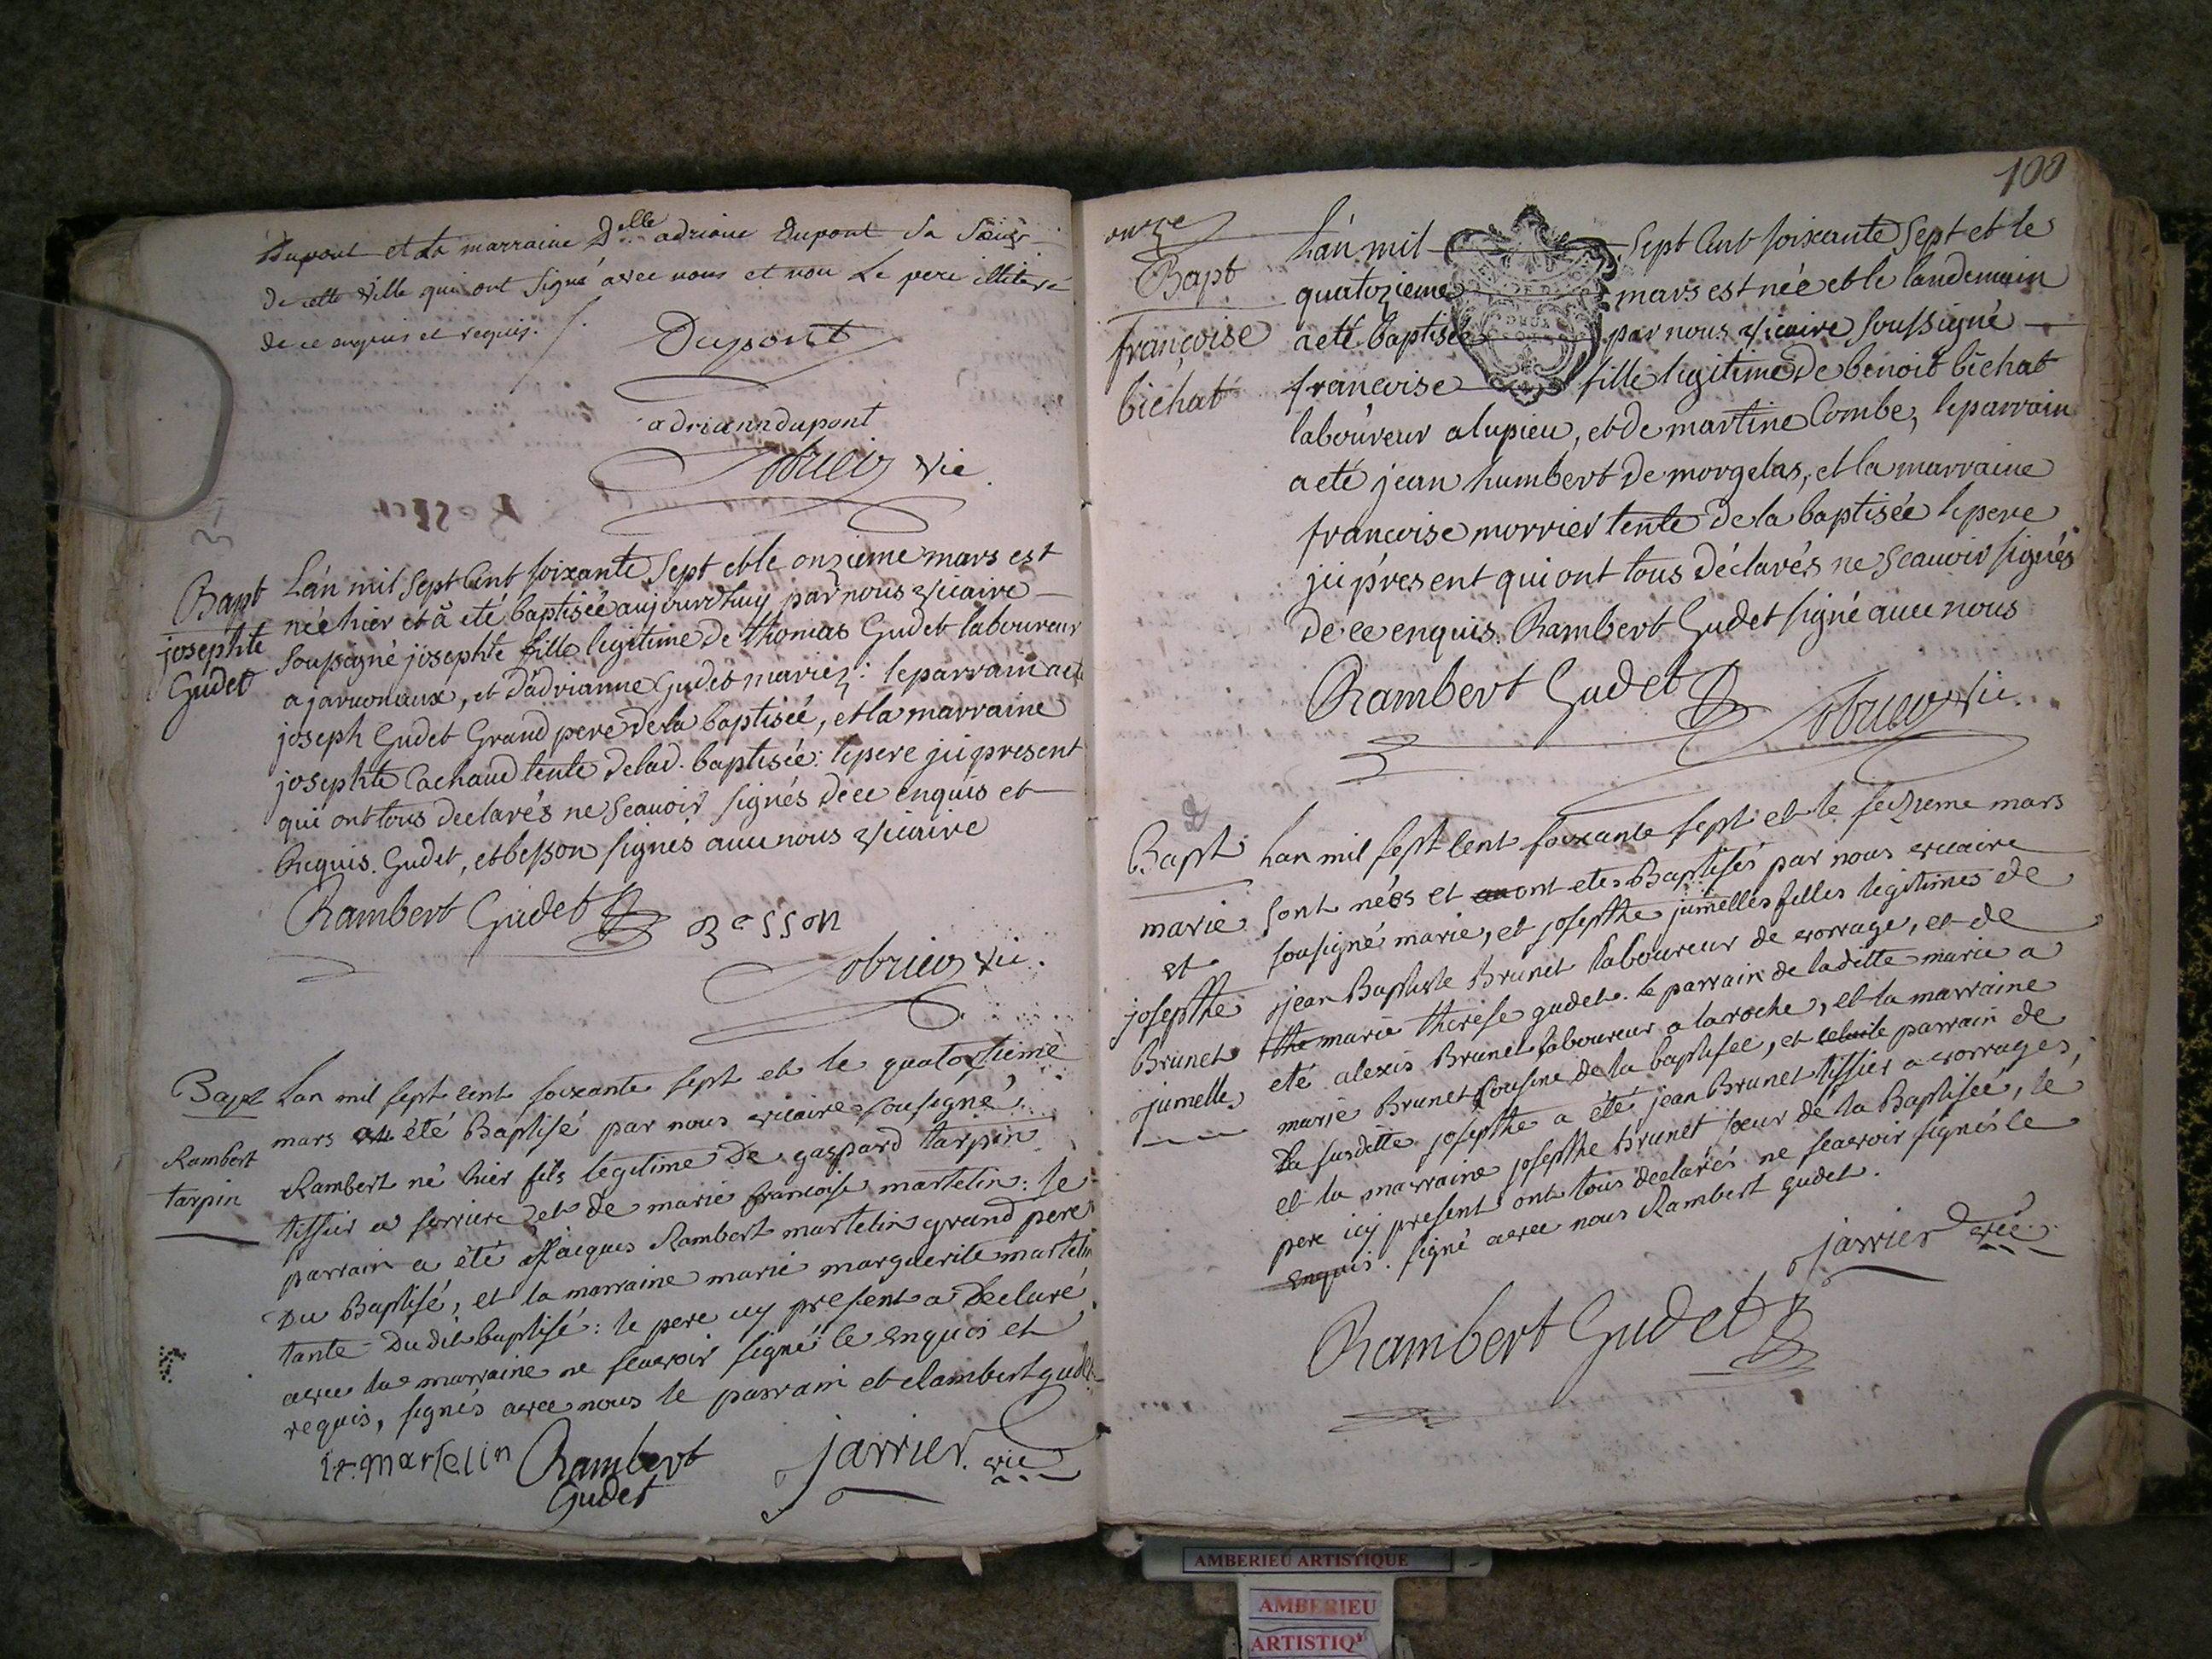 Dupont et la marraine Dlle adriane Dupont sa Soeur
de cette ville qui ont signé avec nous et non le pere illiteré
de ce enquis et requis.
Dupont
adrianne dupont
vic.
Bapt
josephte
Gudet
Lán mil sept Cent soixante Sept et le onzieme mars est
neé hier et à eté baptisée aujourdhuy par nous vicaire
soussigné josephte fille legitime de thomas Gudet laboureur
a jarvonaux, et d'adrianne Gudet mariez: le parrain a eté
joseph Gudet Grand pere de la baptisée, et la marraine
josephte Cachaud tente de lad. baptisée: le pere jci present
qui ont tous declarés ne scauoir signés de ce enquis et
Requis. Gudet, et besson signés auec nous vicaire
Rambert Gudet
Besson
vic.
Bapt
Rambert
tarpin
Lan mil sept cent soixante sept et le quatorzieme
mars a été Baptisé par nous vicaire sousigné,
Rambert né hier fils legitime De gaspard tarpin
tissier a serriere et de marie francoise martelin: le
parrain a été jacques Rambert martelin grand pere
Du Baptisé, et la marraine marie marguerite martelin
tante Du dit baptisé: le pere icy present a Declaré
avec la marraine ne scavoir signé de ce enquis et
requis, signés avec nous le parrain et Rambert gudet
martelin Rambert
Gudet
jarrier. vic
100
onze
Bapt
françoise
bichat
Lán mil Sept Cent soixante Sept et le
quatozieme mars est neé et le landemain
a eté baptisée par nous vicaire soussigné
francoise fille legitime de benoit bichat
laboureur a lupieu, et de martine Combe, le parrain
a eté jean humbert de morgelas, et la marraine
francoise morrier tente de la baptisée le pere
jci présent qui ont tous déclarés ne scauoir signés
de ce enquis. Rambert Gudet signé auec nous
Rambert Gudet
vic.
2
Bapt
marie
et
josepthe
Brunet
jumelle
Lan mil sept cent soixante sept et le seizieme mars
sont néés et ont etes Baptisés par nous vicaire
sousigné marie, et josepthe jumelles filles legitimes de
jean Baptiste Brunet laboureur de vorrage, et de
the marie therese gudet. le parrain de laditte marie a
eté alexis Brunet laboureur a la roche, et la marraine
marie Brunet Cousine de la baptisée, et le parrain de
La susditte josepthe a été jean Brunet tissier a vorrages,
et la marraine josepthe brunet soeur de la Baptisée, le
pere icy present ont tous declarés ne scavoir signés de ce
enquis. signé avec nous Rambert gudet.
jarrier vic
Rambert Gudet
AMBERIEU ARTISTIQUE
AMBERIEU
ARTISTIQ